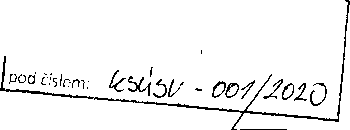 pod číslem: KSÚSV - 001/2020